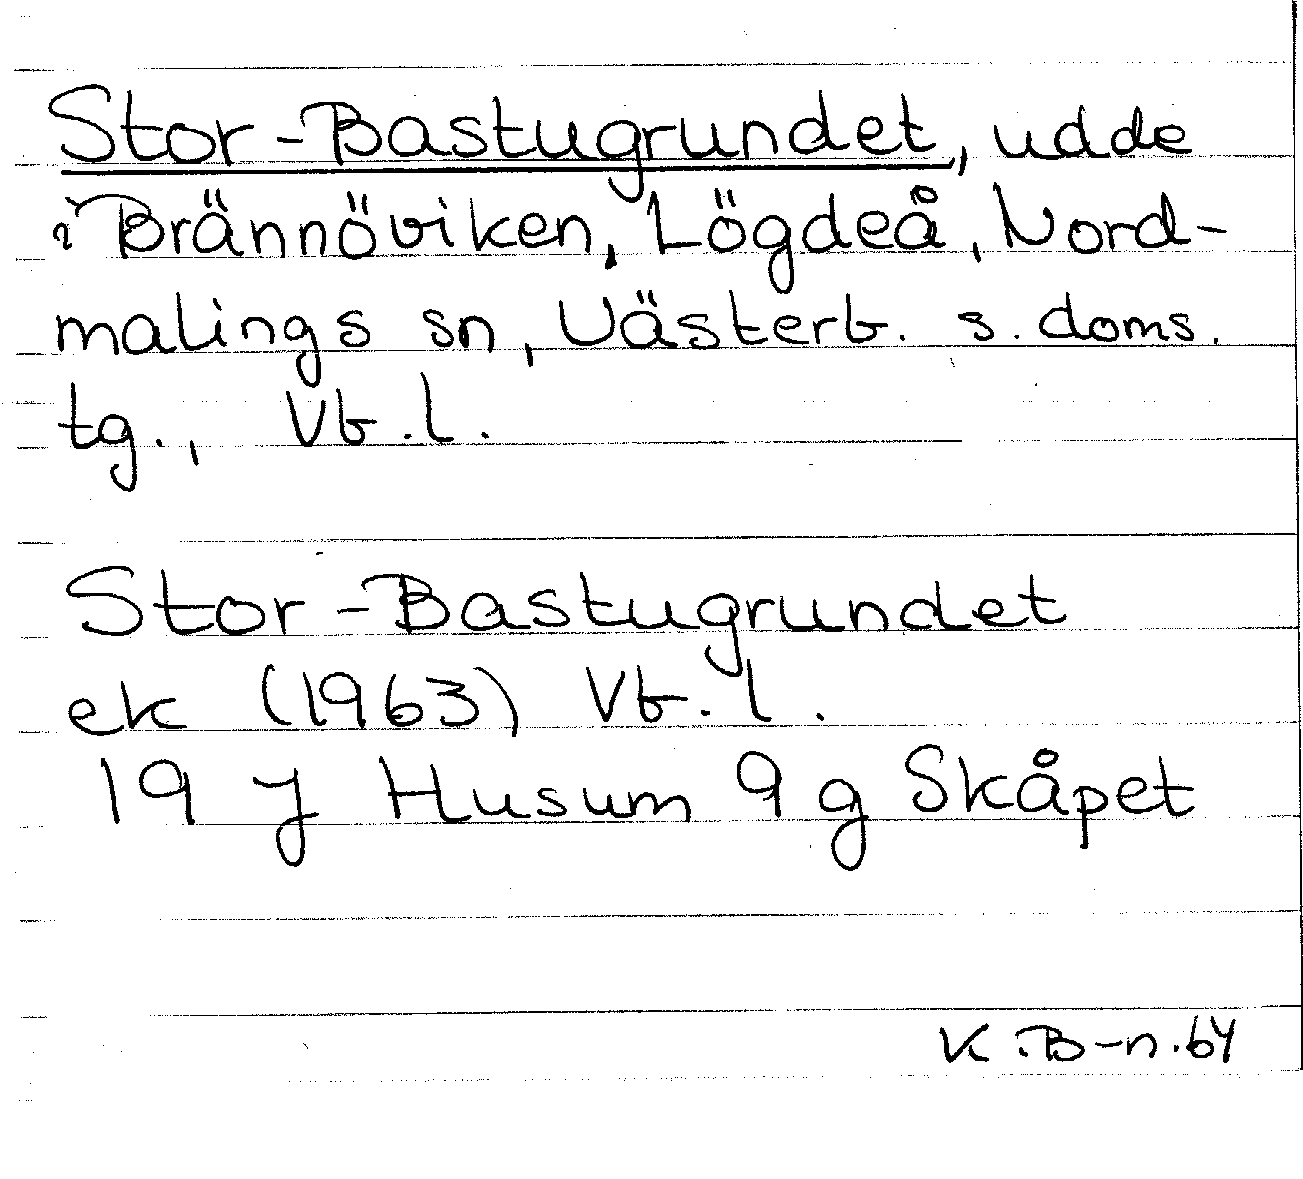 Stor-Bastugrundet, udde
i Brännöviken, Lögdeå, Nord-
malings sn, Västerb. s. doms.
tg., Vb.l.
Stor-Bastugrundet
ek (1963) Vb.l.
19 J Husum 9 g Skåpet
K.B-n.64